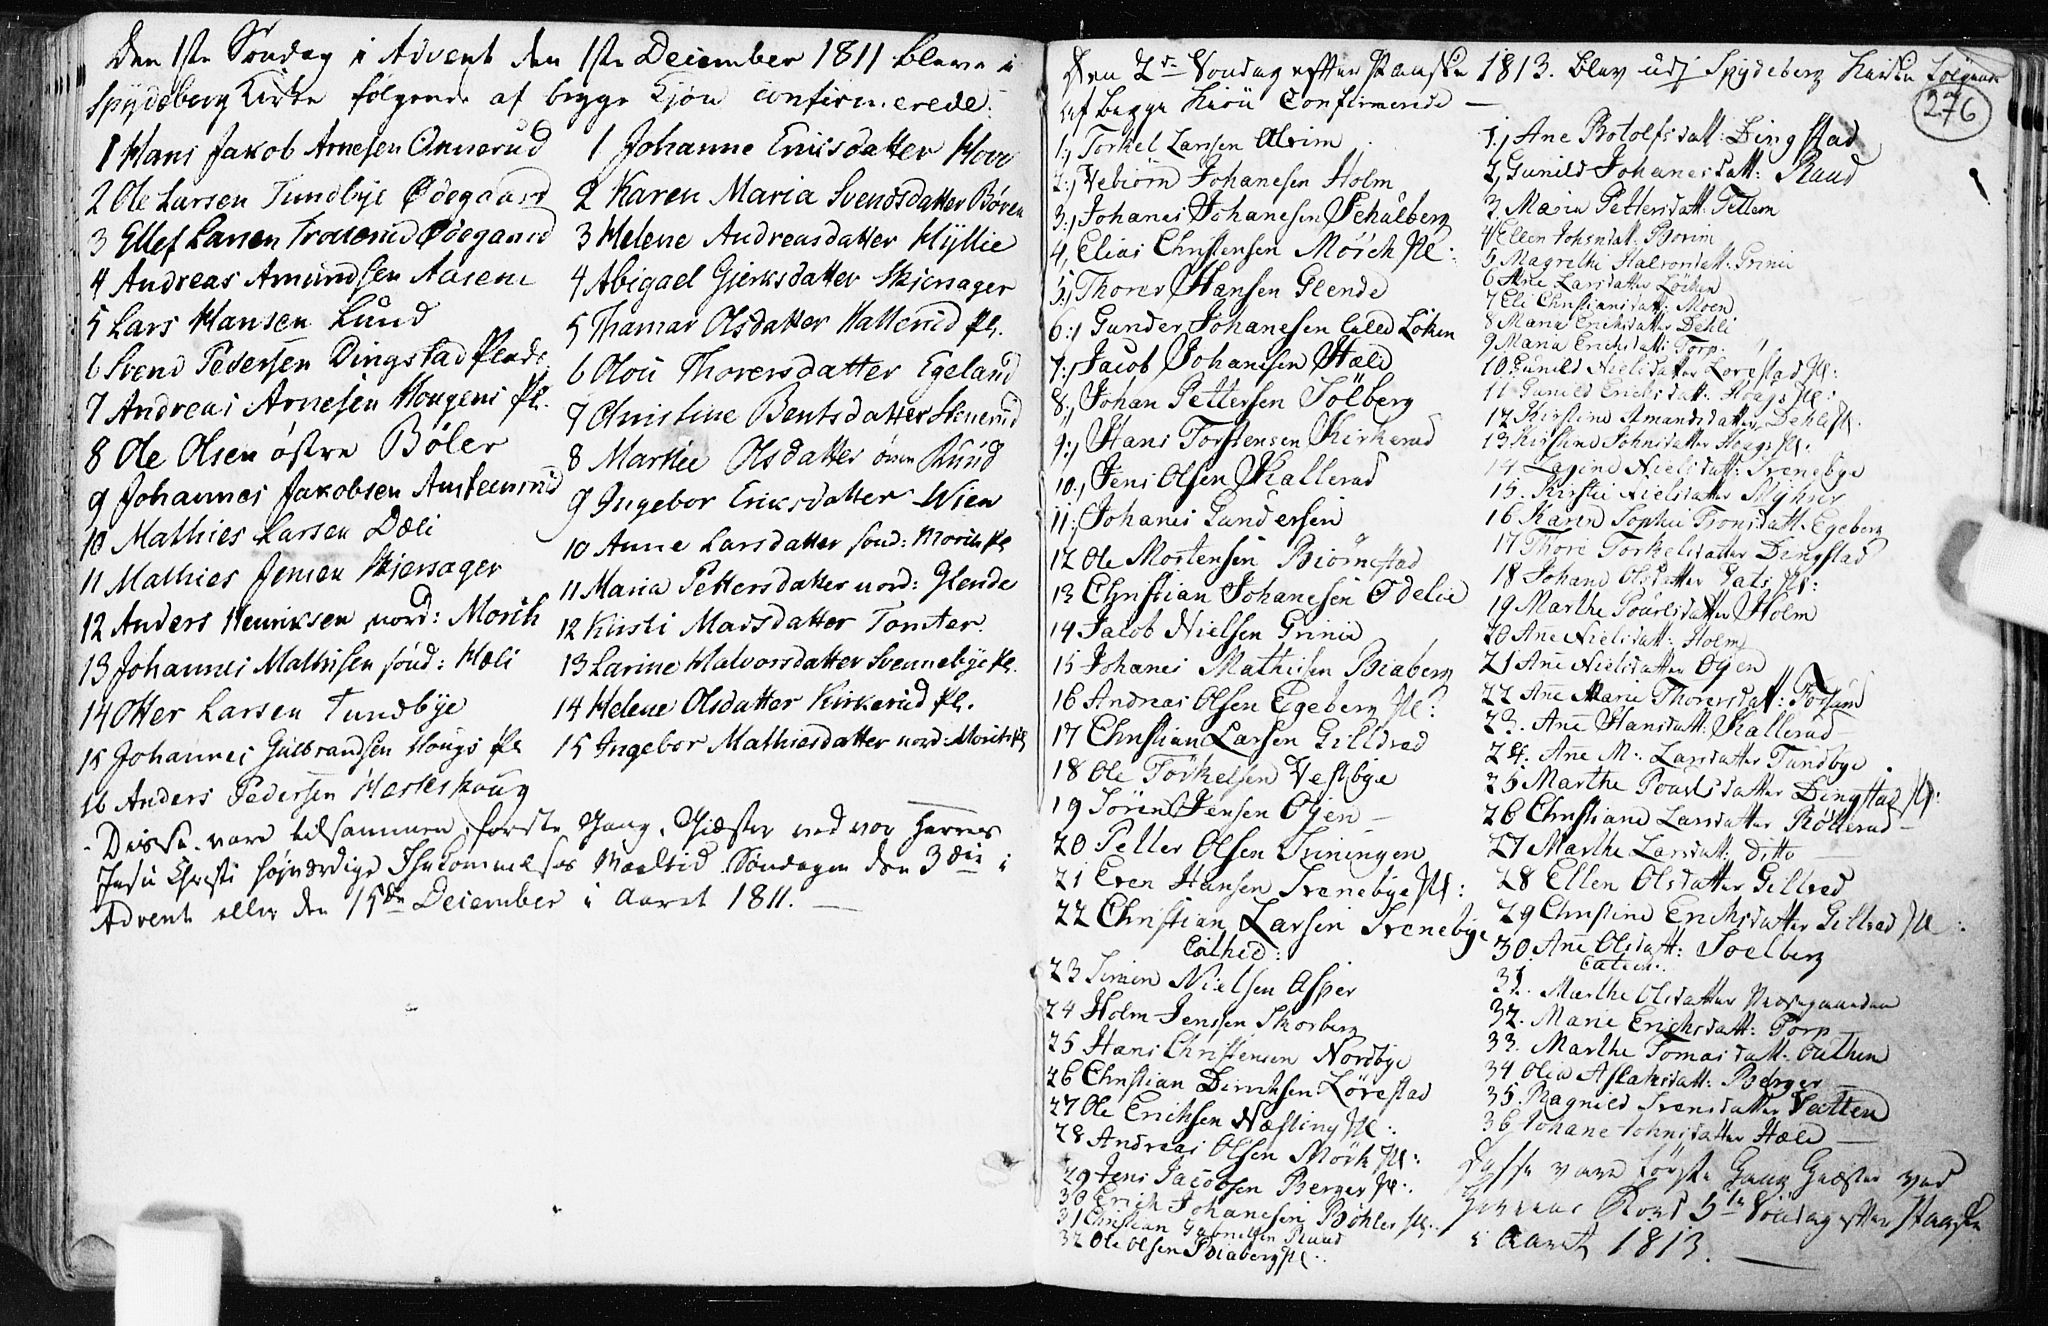 Den 1ste Søndag i Advent den 1ste December 1811 bleve i
Spydeberg Kirke følgende af begge Kjøn confirmerede:
1 Hans Jakob Arnesen
2 Ole Larsen Tundbye Ødegaard
3 Ellef Larsen Ødegaard
4 Andreas Amundsen Aasene
5 Lars Hansen Lund
6 Svend Pedersen Dingstad Plads
7 Andreas Arnesen Hougens Pl.
8 Ole Olsen østre Bøler
9 Johannes Jakobsen
10 Mathies Larsen Dæli
11 Mathies Jensen Skjersager
12 Anders Henriksen nord: Morch
13 Johannes Mathisen sønd: Hæli
14 Otter Larsen Tundbye
15 Johannes Gulbrandsen Hougs Pl
16 Anders Pedersen
1 Johanne Hovv
2 Karen Maria Svendsdatter Bøven
3 Helene Andreasdatter Hyllie
4 Abigael Gjerksdatter Skjersager
5 Thamar Olsdatter Hallerud Pl.
6 Olou Thorersdatter Egeland
7 Christine Bentsdatter
8 Marthe Olsdatter Ruud
9 Ingebor Eriksdatter Wien
10 Anne Larsdatter sønd: Morchs Pl
11 Maria Pettersdatter nord: Glende
12 Kirsti Madsdatter Tomter.
13 Larine Halvorsdatter Svennebye Pl.
14 Helene Olsdatter Kirkerud Pl.
15 Ingebor Mathiesdatter nord: Morchs Pl
Disse vare tilsammen første Gang Giæster ved vor Herres
Jesu Christi høiværdige Ihukommelses Maaltid Søndagen den 3die i
Advent eller den 15de December i Aaret 1811. —
276
Den 2de Søndag efter Paaske 1813. blev udj Spydeberg Kirke følgende
af begge Kiøn Confirmerede —
1, Torkel Larsen Alvim
2, Vebiörn Johanesen Holm
3, Johanes Johanesen Schulberg
4, Elias Christensen Mörch Pl:
5, Thorer Hansen Glende
6, Gunder Johanesen Löken
7, Jacob Johanesen Hæld
8, Johan Pettersen Sölberg
9, Hans Torstensen Kirkerud
10, Jens Olsen Kallerud
11, Johanes Gundersen
12 Ole Mortensen Biörnestad
13 Christian Johanesen Odelie
14 Jacob Nielsen Grinie
15 Johanes Mathiesen Biaberg
16 Andreas Olsen Egeberg Pl:
17 Christian Larsen Gillerud
18 Ole Torkelsen Vestbye
19 Sören Jensen Oyen —
20 Petter Olsen
21 Even Hansen Svenebye Pl:
22 Christian Larsen Svenebye
23 Simen Nielsen Asper
24 Holm Jensen Skorberg
25 Hans Christensen Nordbye
26 Christian Lörestad
27 Ole Erichsen Næsting Pl:
28 Andreas Olsen Mörk Pl:
29 Jens Jacobsen Berger Pl:
30 Erich Johanesen Böhler Pl:
31 Christian Gabrielsen Ruud
32 Ole Olsen Biaberg Pl:
1, Ane Botolfsdatt: Dingstad
2, Gunild Johanesdatt: Ruud
3, Maria Pettersdatt: Tellem
4 Ellen Johsndatt:
5 Magrethe Halvorsdatt: Grinie
6 Ane Larsdatter Löken
7 Eli Christiansdatt: Moen
8 Maria Erichsdatter Dehli
9 Maria Erichsdatt: Torp.
10 Gunild Nielsdatter Lörestad Pl:
11 Gunild Erichsdatt: Hougs Pl:
12 Kirstine Amundsdatter Dehle Pl.
13 Kirstine Johnsdatter Hougs Pl:
14 Lagine Nielsdatt: Svenebye
15. Kirstie Nielsdatter
16 Karen Sophie Tronsdatt: Egeberg
17 Thore Torkelsdatter Dingstad
18 Johane Olsdatter Pl:
19 Marthe Pouelsdatter Holm
20 Ane Nielsdatt: Holm
21 Ane Nielsdatter Oyen
22 Ane Marie Thorersdatt:
23. Ane Hansdatt: Kallerud —
24. Ane M: Larsdatter Tundbye
25 Marthe Pouelsdatter Dingstad Pl:
26 Christiane Larsdatter Röllerud —
27 Marthe Larsdatt: ditto —
28 Ellen Olsdatter Gillerud
29 Christine Erichsdatter Gillerud Pl:
30. Ane Olsdatt: Soelberg
31. Marthe Olsdatter Præstegaarden
32. Marie Erichsdatt: Torp
33. Marthe Tomasdatt:
34 Olea Aslaksdatt: Berger
35. Ragnild Svensdatter Vatten
36 Johane Johnsdatter Hæld —
Disse vare første Gang Giæster ved
Herrens Bord 5te Søndag efter Paaske
i Aaret 1813. —